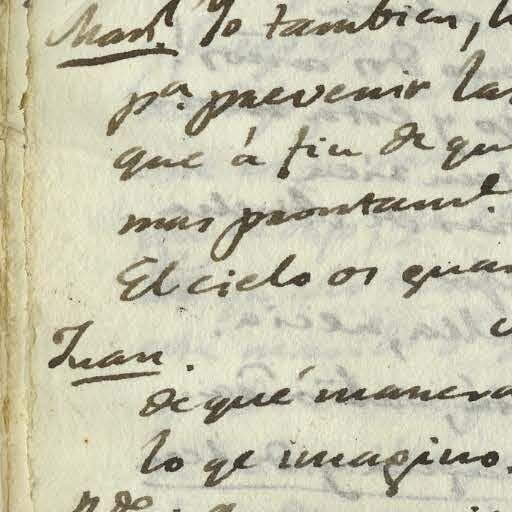 Man.l Yo tambien,
pa. prevenir las
que á fin de qu
mas prontam.e
El cielo os guar
Juan.
de qué manera
lo qe imagino.